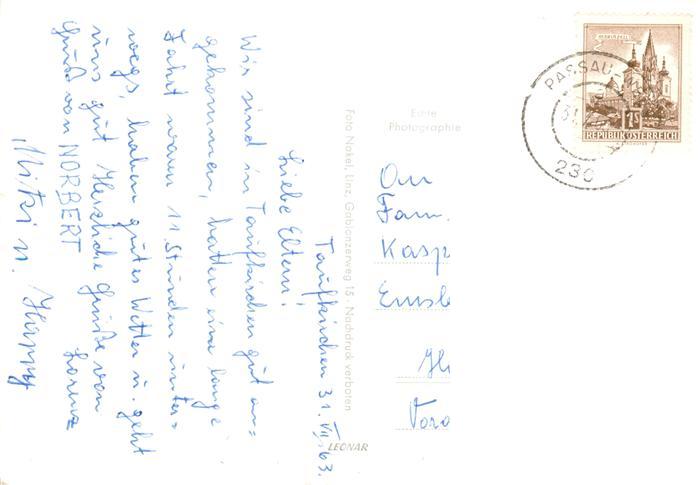 Taufkirchen 31. VII. 63.
Liebe Eltern!
Wir sind in Taufkirchen gut an=
gekommen, hatten eine lange
Fahrt waren 11. Stunden unter=
wegs, haben gutes Wetter u. geht
uns gut Herzliche Grüße von
Gruß von NORBERT Lorenz
Mitzi u.
Echte
Photographie
Foto Nakel, Linz, Gablonzerweg 15 · Nachdruck verboten
LEONAR
An
Fam.
Kasp
Emsb
Vora
PASSAU
230
MARIAZELL
1S
REPUBLIK ÖSTERREICH